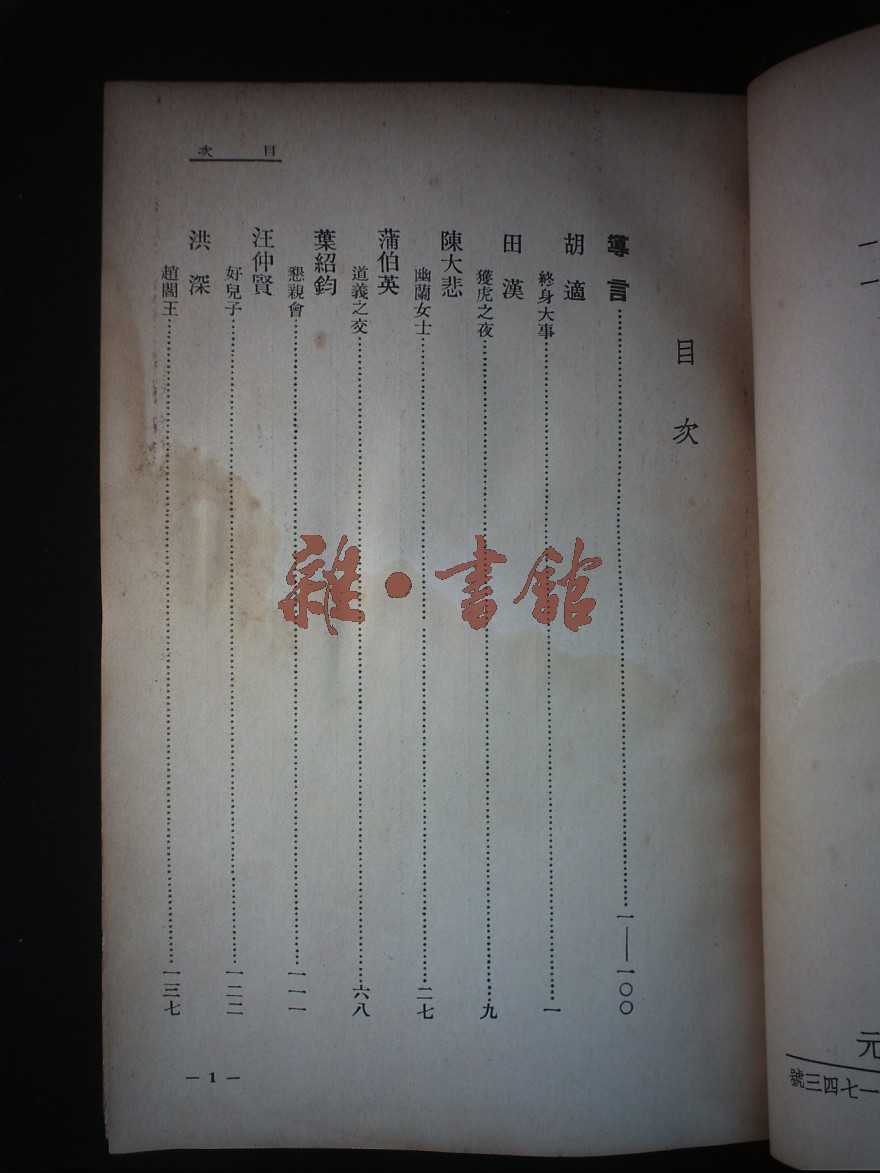 目次
目次
導言……一——一〇〇
胡適
終身大事……一
田漢
獲虎之夜……九
陳大悲
幽蘭女士……二七
蒲伯英
道義之交……六八
葉紹鈞
懇親會……一一一
汪仲賢
好兒子……一二二
洪深
趙閻王……一三七
— 1 —
雜·書館
元
一七四三號